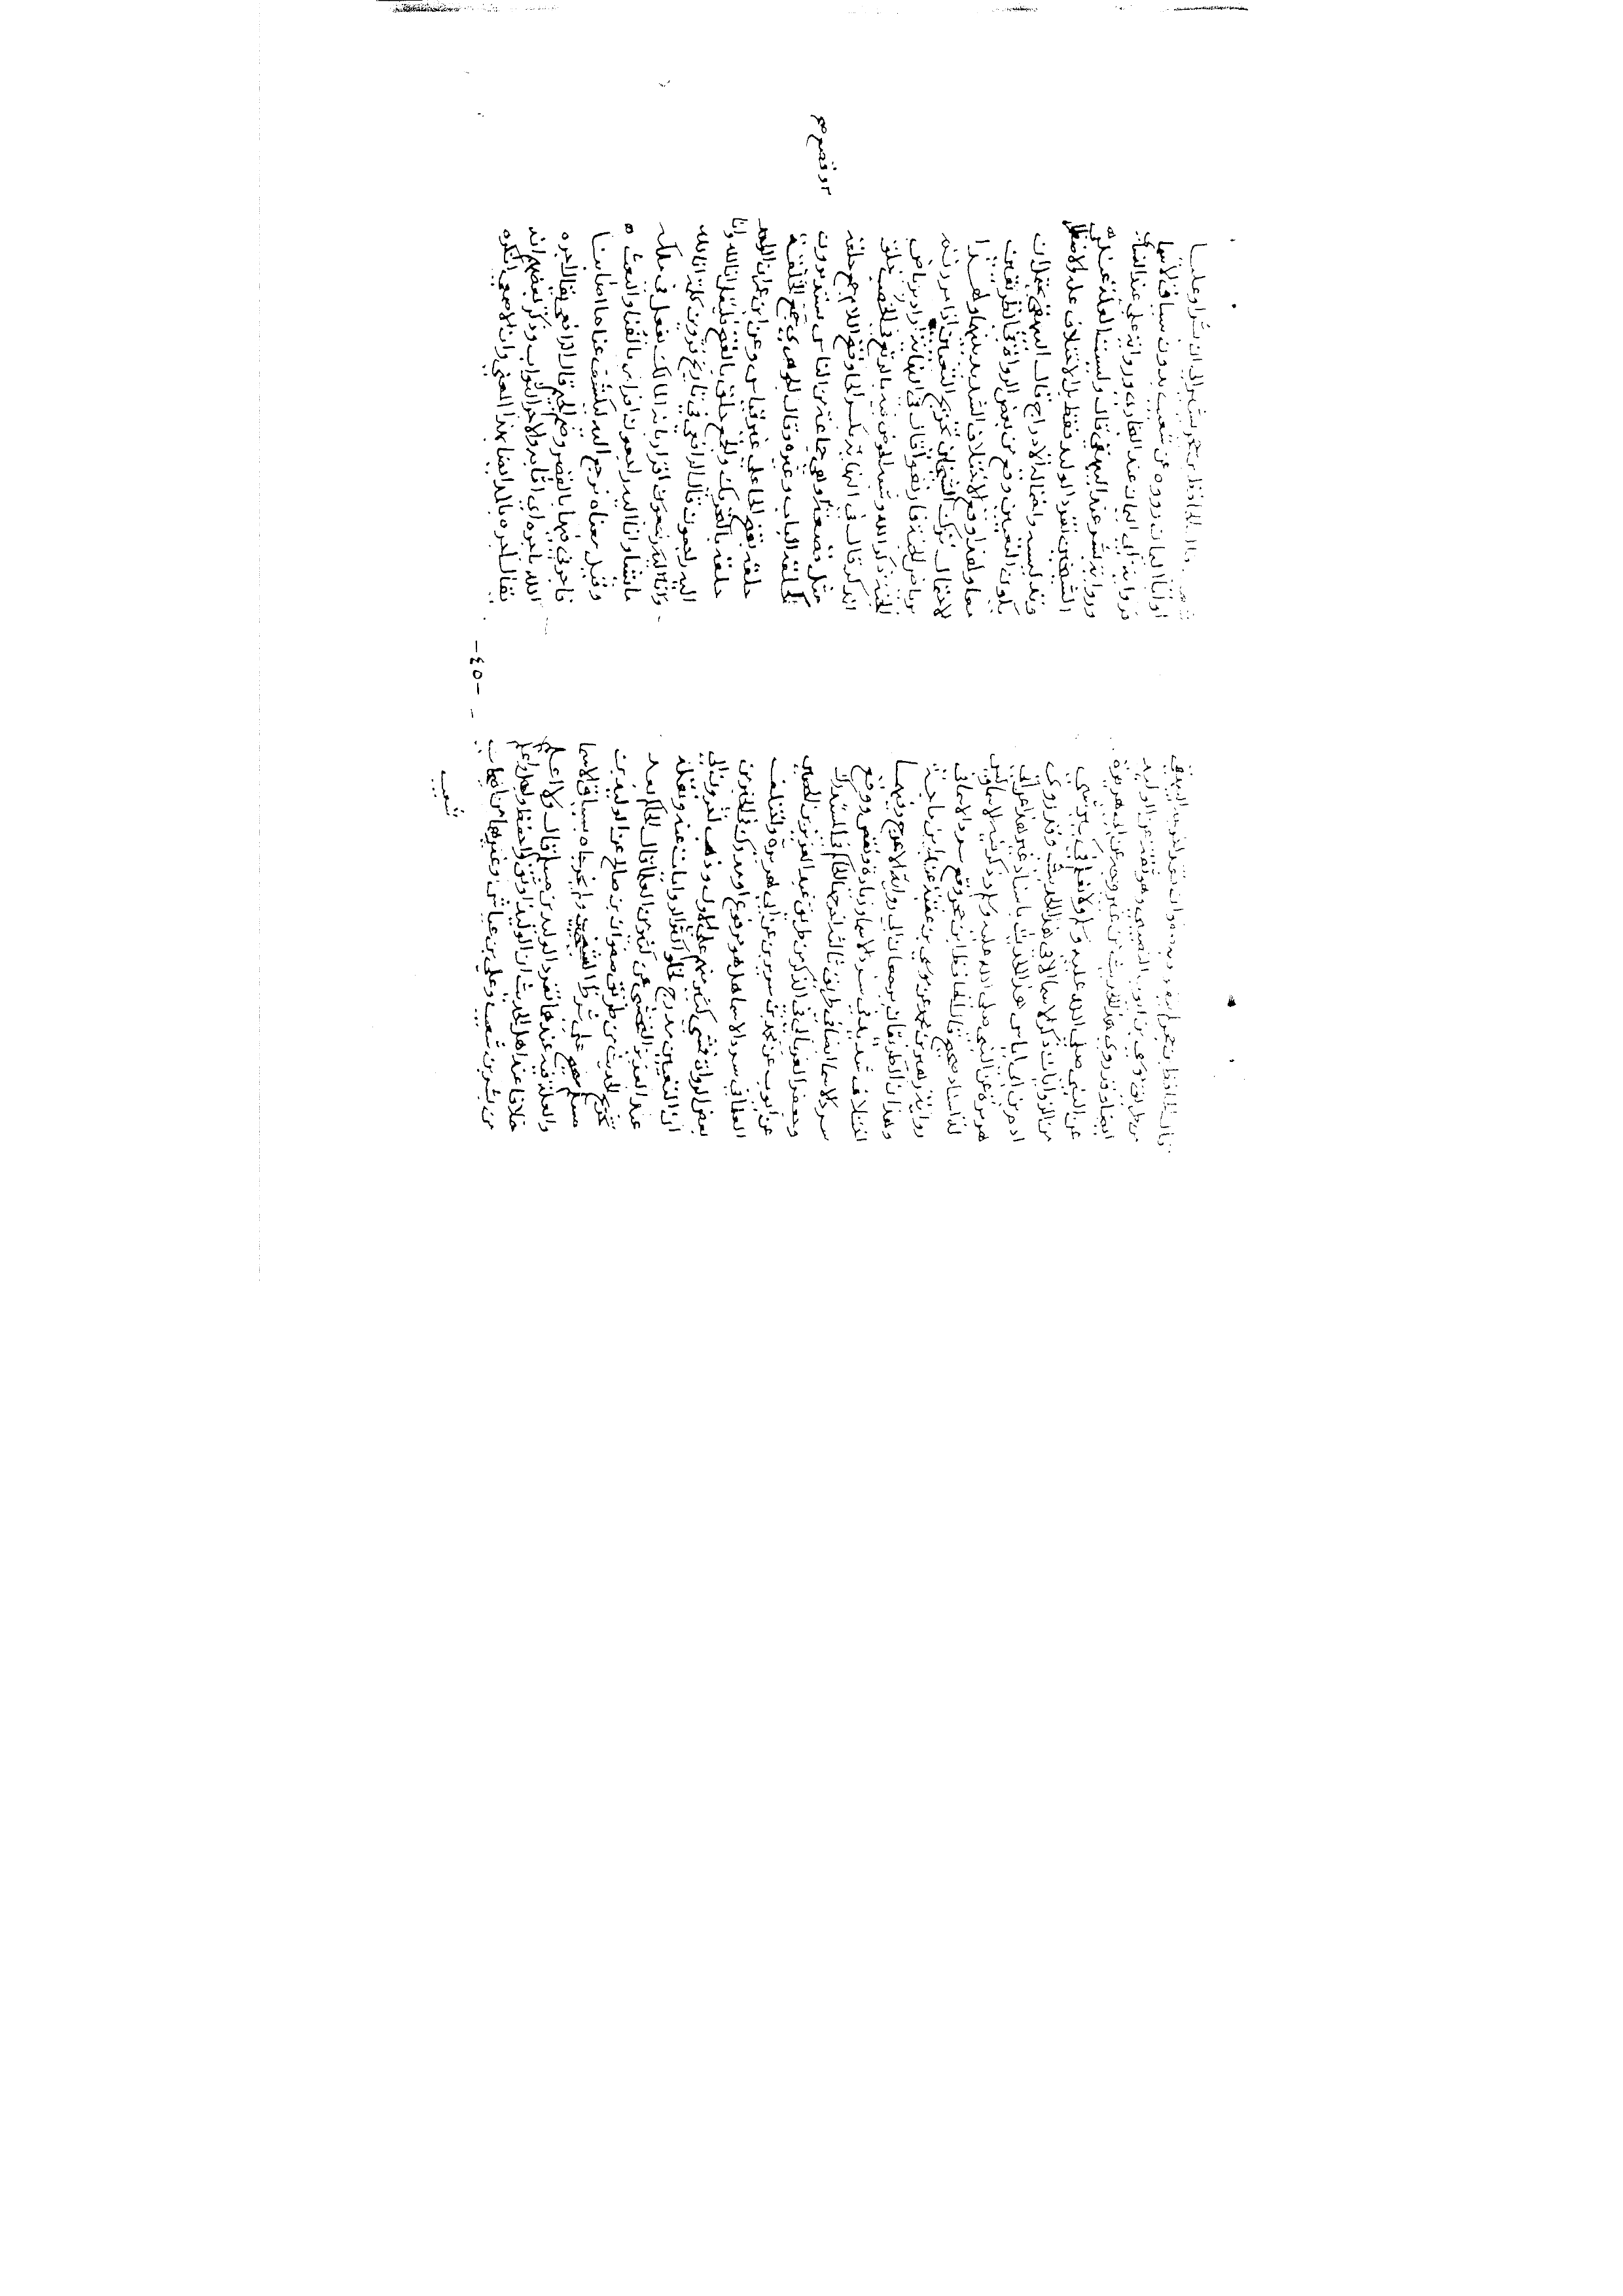 قال الحافظ بن حجر لم ينفرد به صفوان فقد اخرجه البيهقي
من طريق موسى بن ايوب النصيبي وهو ثقة عن الوليد
ايضا وقد روي هذا الحديث من غير وجه عن ابي هريرة
عن النبي صلى الله عليه وسلم ولا نعلم في كبير شي
من الروايات ذكر الاسما الا في هذا الحديث وقد روى
ادم بن ابي اياس هذا الحديث باسناد غير هذا عن ابي
هريرة عن النبي صلى الله عليه وسلم وذكر فيه الاسما وليس
له اسناد صحيح قال الحافظ ابن حجر وقع سرد الاسما في
رواية زهير بن محمد عن موسى بن عقبة عند ابن ماجة
وهذان الطريقان يرجعان الى رواية الاعرج وفيهما
اختلاف شديد في سرد الاسما وزيادة ونقص ووقع
سرد الاسما ايضا في طريق ثالث اخرجها الحاكم في المستدرك
وجعفر الفريابي في الذكر من طريق عبد العزيز بن الحصين
عن ايوب عن محمد بن سيرين عن ابي هريرة واختلف
العلما في سرد الاسما هل هو مرفوع او مدرك في الخبر من
بعض الرواة فمشى كثير منهم على الاول وذهب اخرون الى
ان التعيين مدرج لخلو اكثر الروايات عنه ونقله
عبد العزيز النخشبي عن كثير من العلما قال الحاكم بعد
تخريج الحديث من طريق صفوان بن صالح عن الوليد بن
مسلم صحيح على شرط الشيخين ولم يخرجاه بسياق الاسما
والعلة فيه عندهما تفرد الوليد بن مسلم قال ولا اعلم
خلافا عند اهل الحديث ان الوليد اوثق واحفظ واجل واعلم
من بشر بن شعيب وعلي بن عياش وغيرهما من اصحاب
شعيب
شعيب قال الحافظ بن حجر يشير الى ان بشرا وعليا
وابا اليمان رووه عن شعيب بدون سياق الاسما
فرواية ابي اليمان عند البخاري ورواية علي عند النسائي
ورواية بشر عند البيهقي قال وليست العلة عند
الشيخين تفرد الوليد فقط بل الاختلاف عليه والاضطراب
وتدليسه واحتمال الادراج قال البيهقي يحتمل ان
يكون التعيين وقع من بعض الرواة في الطريقين
معا ولهذا وقع الاختلاف الشديد بينهما ولهذا
الاحتمال ترك الشيخان تخريج التعيين اذا مررتم
برياض الجنة فارتعوا قال في النهاية اراد برياض
الجنة ذكر الله وشبه الخوض فيه بالرتع في الخصب حلق
الذكر قال في النهاية بكسر الحا وفتح اللام جمع حلقة
مثل قصعة وهي جماعة من الناس يستديرون
كحلقة الباب وغيره وقال الجوهري جمع الحلقة
حلقة بفتح الحا على غير قياس وعن ابي عمرو ان الواحد
حلقة بالتحريك والجمع حلق بالفتح فليقل انا لله وانا
اليه راجعون قال الرافعي في تاريخ قزوين كلمة انا لله
وانا اليه راجعون اقرار بانه المالك يفعل في ملكه
ما يشا وانا اليه راجعون اقرار بالفنا والبعث
وقيل معناه نرجع اليه ليكشف عنا ما اصابنا
فاجرني فيها بالقصر وضم الجيم قال الرافعي يقال اجره
الله ياجره اي اثابه والاجر الثواب وذكر بعضهم انه
يقال اجره بالمد ايضا بهذا المعنى وان الاصمعي انكره
وقصع صح
-٤٥-